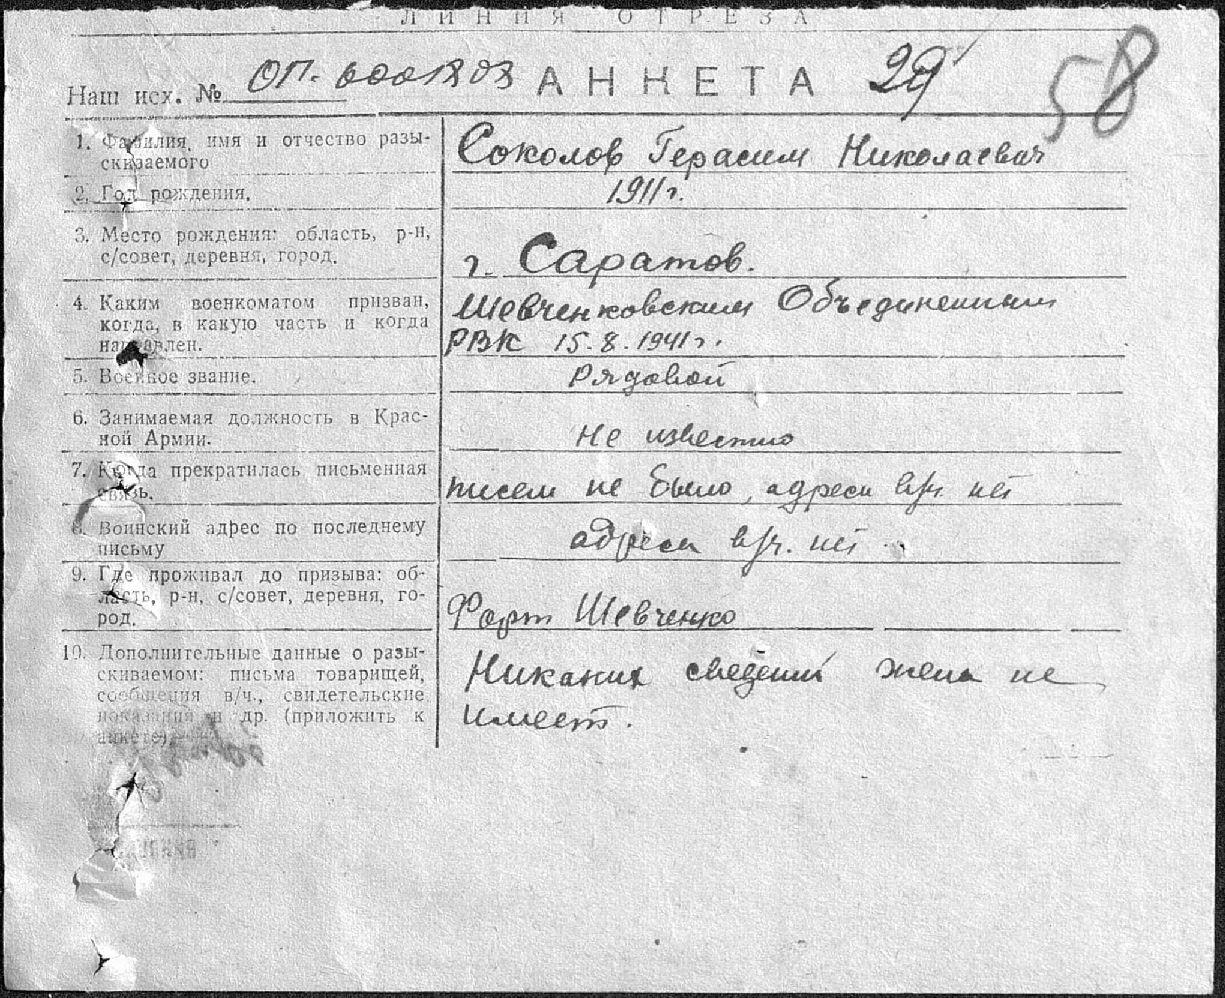 ЛИНИЯ ОТРЕЗА
Наш исх. № ОП- АНКЕТА 29 58
1. Фамилия, имя и отчество разы-
скиваемого
Соколов Герасим Николаевич
2. Год рождения.
1911 г.
3. Место рождения: область, р-н,
с/совет, деревня, город.
г. Саратов.
4. Каким военкоматом призван,
когда, в какую часть и когда
направлен.
Шевченковским Объединенным
РВК 15.8.1941 г.
5. Военное звание.
Рядовой
6. Занимаемая должность в Крас-
ной Армии.
не известно
7. Когда прекратилась письменная
связь.
писем не было, адреса в/ч. нет
8. Воинский адрес по последнему
письму
адреса в/ч. нет
9. Где проживал до призыва: об-
ласть, р-н, с/совет, деревня, го-
род.
Форт Шевченко
10. Дополнительные данные о разы-
скиваемом: письма товарищей,
сообщения в/ч., свидетельские
показания и др. (приложить к
анкете)
Никаких сведений жена не
имеет.